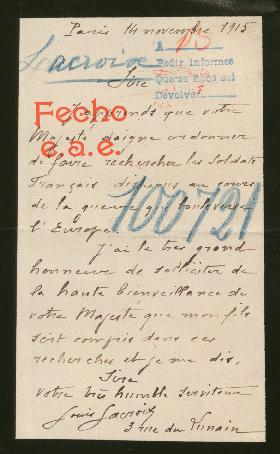 Paris 14 novembre 1915
Lacroix
Pedir informes
Que se hace aci
Devolver
Sire
J'apprends que votre
Fecho
Majesté daigne ordonner
e.a.e.
de faire rechercher les soldats
français disparus au cours
de la guerre qui bouleverse
100721
l'Europe.
J'ai le très grand
honneur de solliciter de
la haute bienveillance de
votre Majesté que mon fils
soit compris dans ces
recherches et je me dis,
Sire
votre très humble serviteur
Louis Lacroix
3 rue du Lunain